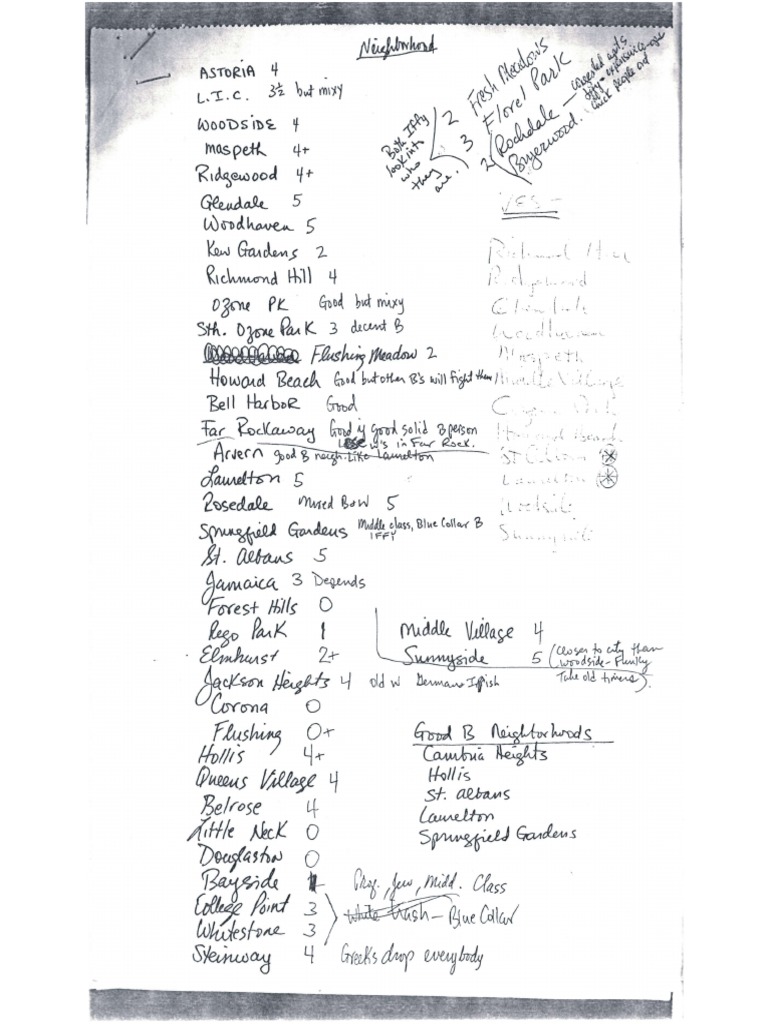 Neighborhood
ASTORIA 4
L.I.C. 3½ but mixy
WOODSIDE 4
maspeth 4+
Ridgewood 4+
Glendale 5
Woodhaven 5
Kew Gardens 2
Richmond Hill 4
Ozone PK Good but mixy
Sth. Ozone Park 3 decent B
Flushing Meadow 2
Howard Beach Good but other B's will fight them
Bell Harbor Good
Far Rockaway Good if good solid B person
W's in Far Rock.
Arvern good B neigh. Like Laurelton
Laurelton 5
Rosedale Mixed B&W 5
Springfield Gardens Middle class, Blue Collar B
IFFY
St. Albans 5
Jamaica 3 Depends
Forest Hills 0
Rego Park 1
Elmhurst 2+
Jackson Heights 4 old w German Irish
Corona 0
Flushing 0+
Hollis 4+
Queens Village 4
Belrose 4
Little Neck 0
Douglaston 0
Bayside Prof., Jew, Midd. Class
College Point 3
White trash – Blue Collar
Whitestone 3
Steinway 4 Greeks drop everybody
2 Fresh Meadows
3 Florel Park
2 Rochdale – congested apts
Bryerwood.
Both Iffy
look into
who
they
are.
YES –
Richmond Hill
Ridgewood
Glendale
Woodhaven
Maspeth
Middle Village
Ozone Park
Howard Beach
St Albans
Laurelton
Woodside
Sunnyside
Middle Village 4
Sunnyside 5 (Closer to city than
Woodside – Funky
Take old timers).
Good B Neighborhoods
Cambria Heights
Hollis
St. Albans
Laurelton
Springfield Gardens